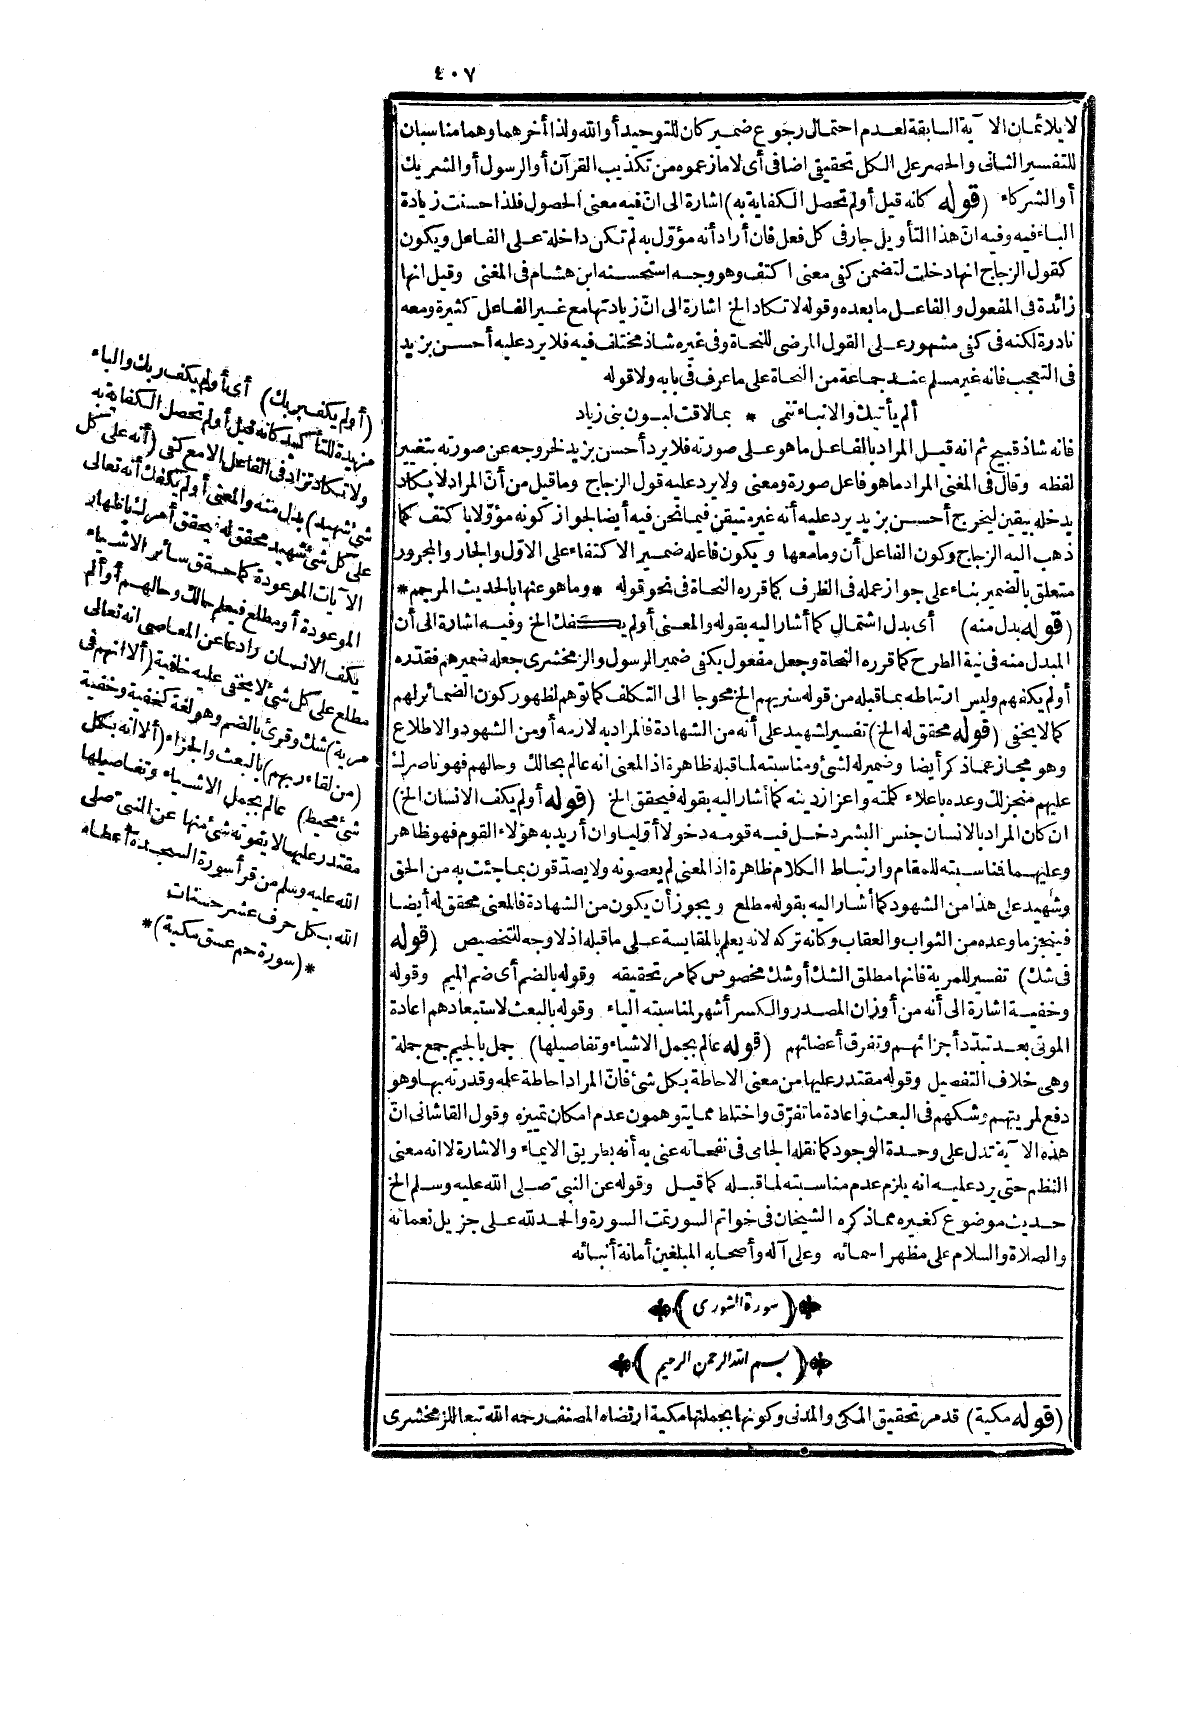 ٤٠٧
لا يلائمان الآية السابقة لعدم احتمال رجوع ضمير كان للتوحيد أو الله ولذا أخرهما وهما مناسبان
للتفسير الثانى والحصر على الكل تحقيقى اضافى أى لا مازعموه من تكذيب القرآن أو الرسول أو الشريك
أو الشركاء (قوله كانه قيل أولم تحصل الكفاية به) اشارة الى انّ فيه معنى الحصول فلذا حسنت زيادة
الباء فيه وفيه انّ هذا التأويل جار فى كل فعل فان أراد أنه مؤوّل به لم تكن داخلة على الفاعل ويكون
كقول الزجاج انها دخلت لتضمن كفى معنى اكتف وهو وجه استحسنه ابن هشام فى المغنى وقيل انها
زائدة فى المفعول والفاعل ما بعده وقوله لا تكاد الخ اشارة الى انّ زيادتها مع غير الفاعل كثيرة ومعه
نادرة لكنه فى كفى مشهور على القول المرضى للنحاة وفى غيره شاذ مختلف فيه فلا يرد عليه أحسن بزيد
فى التعجب فانه غير مسلم عند جماعة من النحاة على ما عرف فى بابه ولا قوله
ألم يأتيك والانباء تنمى * بما لاقت لبون بنى زياد
فانه شاذ قبيح ثم انه قيل المراد بالفاعل ما هو على صورته فلا يرد أحسن بزيد لخروجه عن صورته بتغيير
لفظه وقال فى المغنى المراد ما هو فاعل صورة ومعنى ولا يرد عليه قول الزجاج وما قيل من أنّ المراد لا يكاد
يدخله بيقين ليخرج أحسن بزيد يرد عليه أنه غير متيقن فيما نحن فيه أيضا لجواز كونه مؤوّلا با كتف كما
ذهب اليه الزجاج وكون الفاعل أن وما معها ويكون فاعله ضمير الاكتفاء على الاوّل والجار والمجرور
متعلق بالضمير بناء على جواز عمله فى الظرف كما قرره النحاة فى نحو قوله *وما هو عنها بالحديث المرجم*
(قوله بدل منه) أى بدل اشتمال كما أشار اليه بقوله والمعنى أولم يكفك الخ وفيه اشارة الى أن
المبدل منه فى نية الطرح كما قرره النحاة وجعل مفعول يكفى ضمير الرسول والزمخشرى جعله ضميرهم فقدّره
أولم يكفهم وليس ارتباطه بما قبله من قوله سنريهم الخ محوجا الى التكلف كما توهم لظهور كون الضمائر لهم
كما لا يخفى (قوله محقق له الخ) تفسير لشهيد على أنه من الشهادة فالمراد به لازمه أو من الشهود والاطلاع
وهو مجاز عما ذكر أيضا وضميره لشئ ومناسبته لما قبله ظاهرة اذ المعنى انه عالم بحالك وحالهم فهو ناصرك
عليهم منجز لك وعده باعلاء كلمته واعزاز دينه كما أشار اليه بقوله فيحقق الخ (قوله أولم يكف الانسان الخ)
ان كان المراد بالانسان جنس البشر دخل فيه قومه دخولا أوّليا وان أريد به هؤلاء القوم فهو ظاهر
وعليهما فمناسبته للمقام وارتباط الكلام ظاهرة اذ المعنى لم يعصونه ولا يصدّقون بما جئت به من الحق
وشهيد على هذا من الشهود كما أشار اليه بقوله مطلع ويجوز أن يكون من الشهادة فالمعنى محقق له أيضا
فينجز ما وعده من الثواب والعقاب وكانه تركه لانه يعلم بالمقايسة على ما قبله اذ لا وجه للتخصيص (قوله
فى شك) تفسير للمرية فانها مطلق الشك أو شك مخصوص كما مر تحقيقه وقوله بالضم أى ضم الميم وقوله
وخفية اشارة الى أنه من أوزان المصدر والكسر أشهر لمناسبته الياء وقوله بالبعث لاستبعادهم اعادة
الموتى بعد تبدّد أجزائهم وتفرق أعضائهم (قوله عالم بجمل الاشياء وتفاصيلها) جمل بالجيم جمع جملة
وهى خلاف التفصيل وقوله مقتدر عليها من معنى الاحاطة بكل شئ فانّ المراد احاطة علمه وقدرته بها وهو
دفع لمريتهم وشكهم فى البعث واعادة ما تفرّق واختلط مما يتوهمون عدم امكان تمييزه وقول القاشانى انّ
هذه الآية تدل على وحدة الوجود كما نقله الجامى فى نفحاته عنى به أنه بطريق الايماء والاشارة لا انه معنى
النظم حتى يرد عليه انه يلزم عدم مناسبته لما قبله كما قيل وقوله عن النبىّ صلى الله عليه وسلم الخ
حديث موضوع كغيره مما ذكره الشيخان فى خواتم السور تمت السورة والحمد لله على جزيل نعمائه
والصلاة والسلام على مظهر اسمائه وعلى آله وأصحابه المبلغين أمانة أنبائه
(سورة الشورى)
(بسم الله الرحمن الرحيم)
(قوله مكية) قد مر تحقيق المكى والمدنى وكونها بجملتها مكية ارتضاه المصنف رحمه الله تبعا للزمخشرى
(أولم يكف بربك) أى أولم يكف ربك والباء
مزيدة للتأكيد كانه قيل أولم تحصل الكفاية به
ولا تكاد تزاد فى الفاعل الا مع كفى (أنه على كل
شئ شهيد) بدل منه والمعنى أولم يكفك أنه تعالى
على كل شئ شهيد محقق له فيحقق أمرك باظهار
الآيات الموعودة كما حقق سائر الاشياء
الموعودة أو مطلع فيعلم حالك وحالهم أو ألم
يكف الانسان رادعا عن المعاصى انه تعالى
مطلع على كل شئ لا يخفى عليه خافية (ألا انهم فى
مرية) شك وقرئ بالضم وهو لغة كخفية وخفية
(من لقاء ربهم) بالبعث والجزاء (ألا انه بكل
شئ محيط) عالم بجمل الاشياء وتفاصيلها
مقتدر عليها لا يفوته شئ منها عن النبىّ صلى
الله عليه وسلم من قرأ سورة السجدة أعطاه
الله بكل حرف عشر حسنات
*(سورة حم عسق مكية)*